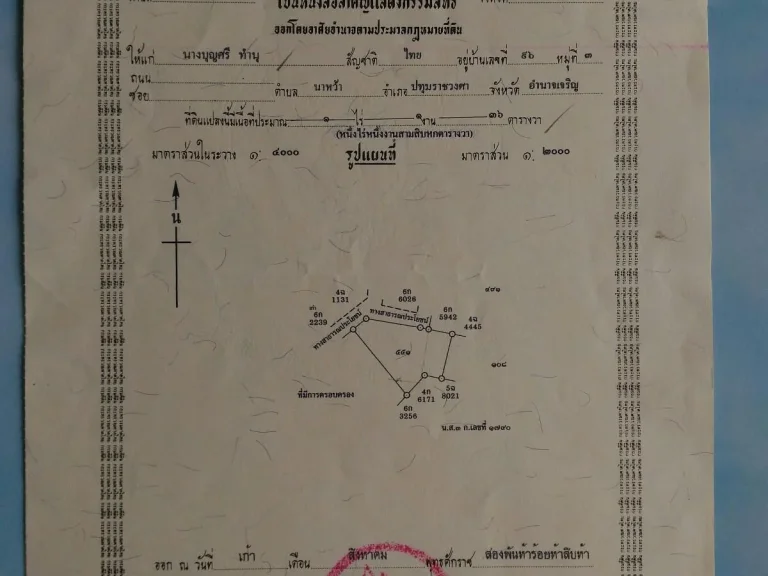 เป็นหนังสือสำคัญแสดงกรรมสิทธิ์
ออกโดยอาศัยอำนาจตามประมวลกฎหมายที่ดิน
ให้แก่ นางบุญศรี ทำนุ สัญชาติ ไทย อยู่บ้านเลขที่ ๕๖ หมู่ที่ ๓
ถนน
ซอย ตำบล นาหว้า อำเภอ ปทุมราชวงศา จังหวัด อำนาจเจริญ
ที่ดินแปลงนี้มีเนื้อที่ประมาณ ๑ ไร่ ๑ งาน ๓๖ ตารางวา
(หนึ่งไร่หนึ่งงานสามสิบหกตารางวา)
มาตราส่วนในระวาง ๑: ๔๐๐๐ รูปแผนที่ มาตราส่วน ๑: ๒๐๐๐
น
4ฉ
1131
6ก
6026
๔๙๑
6ก
2239
6ก
5942
4ฉ
4445
ทางสาธารณประโยชน์
ทางสาธารณประโยชน์
๕๕๑
๑๐๔
ที่มีการครอบครอง
4ก
6171
5ฉ
8021
6ก
3256
น.ส.๓ ก.เลขที่ ๑๗๙๐
ออก ณ วันที่ เก้า เดือน สิงหาคม พุทธศักราช สองพันห้าร้อยห้าสิบห้า